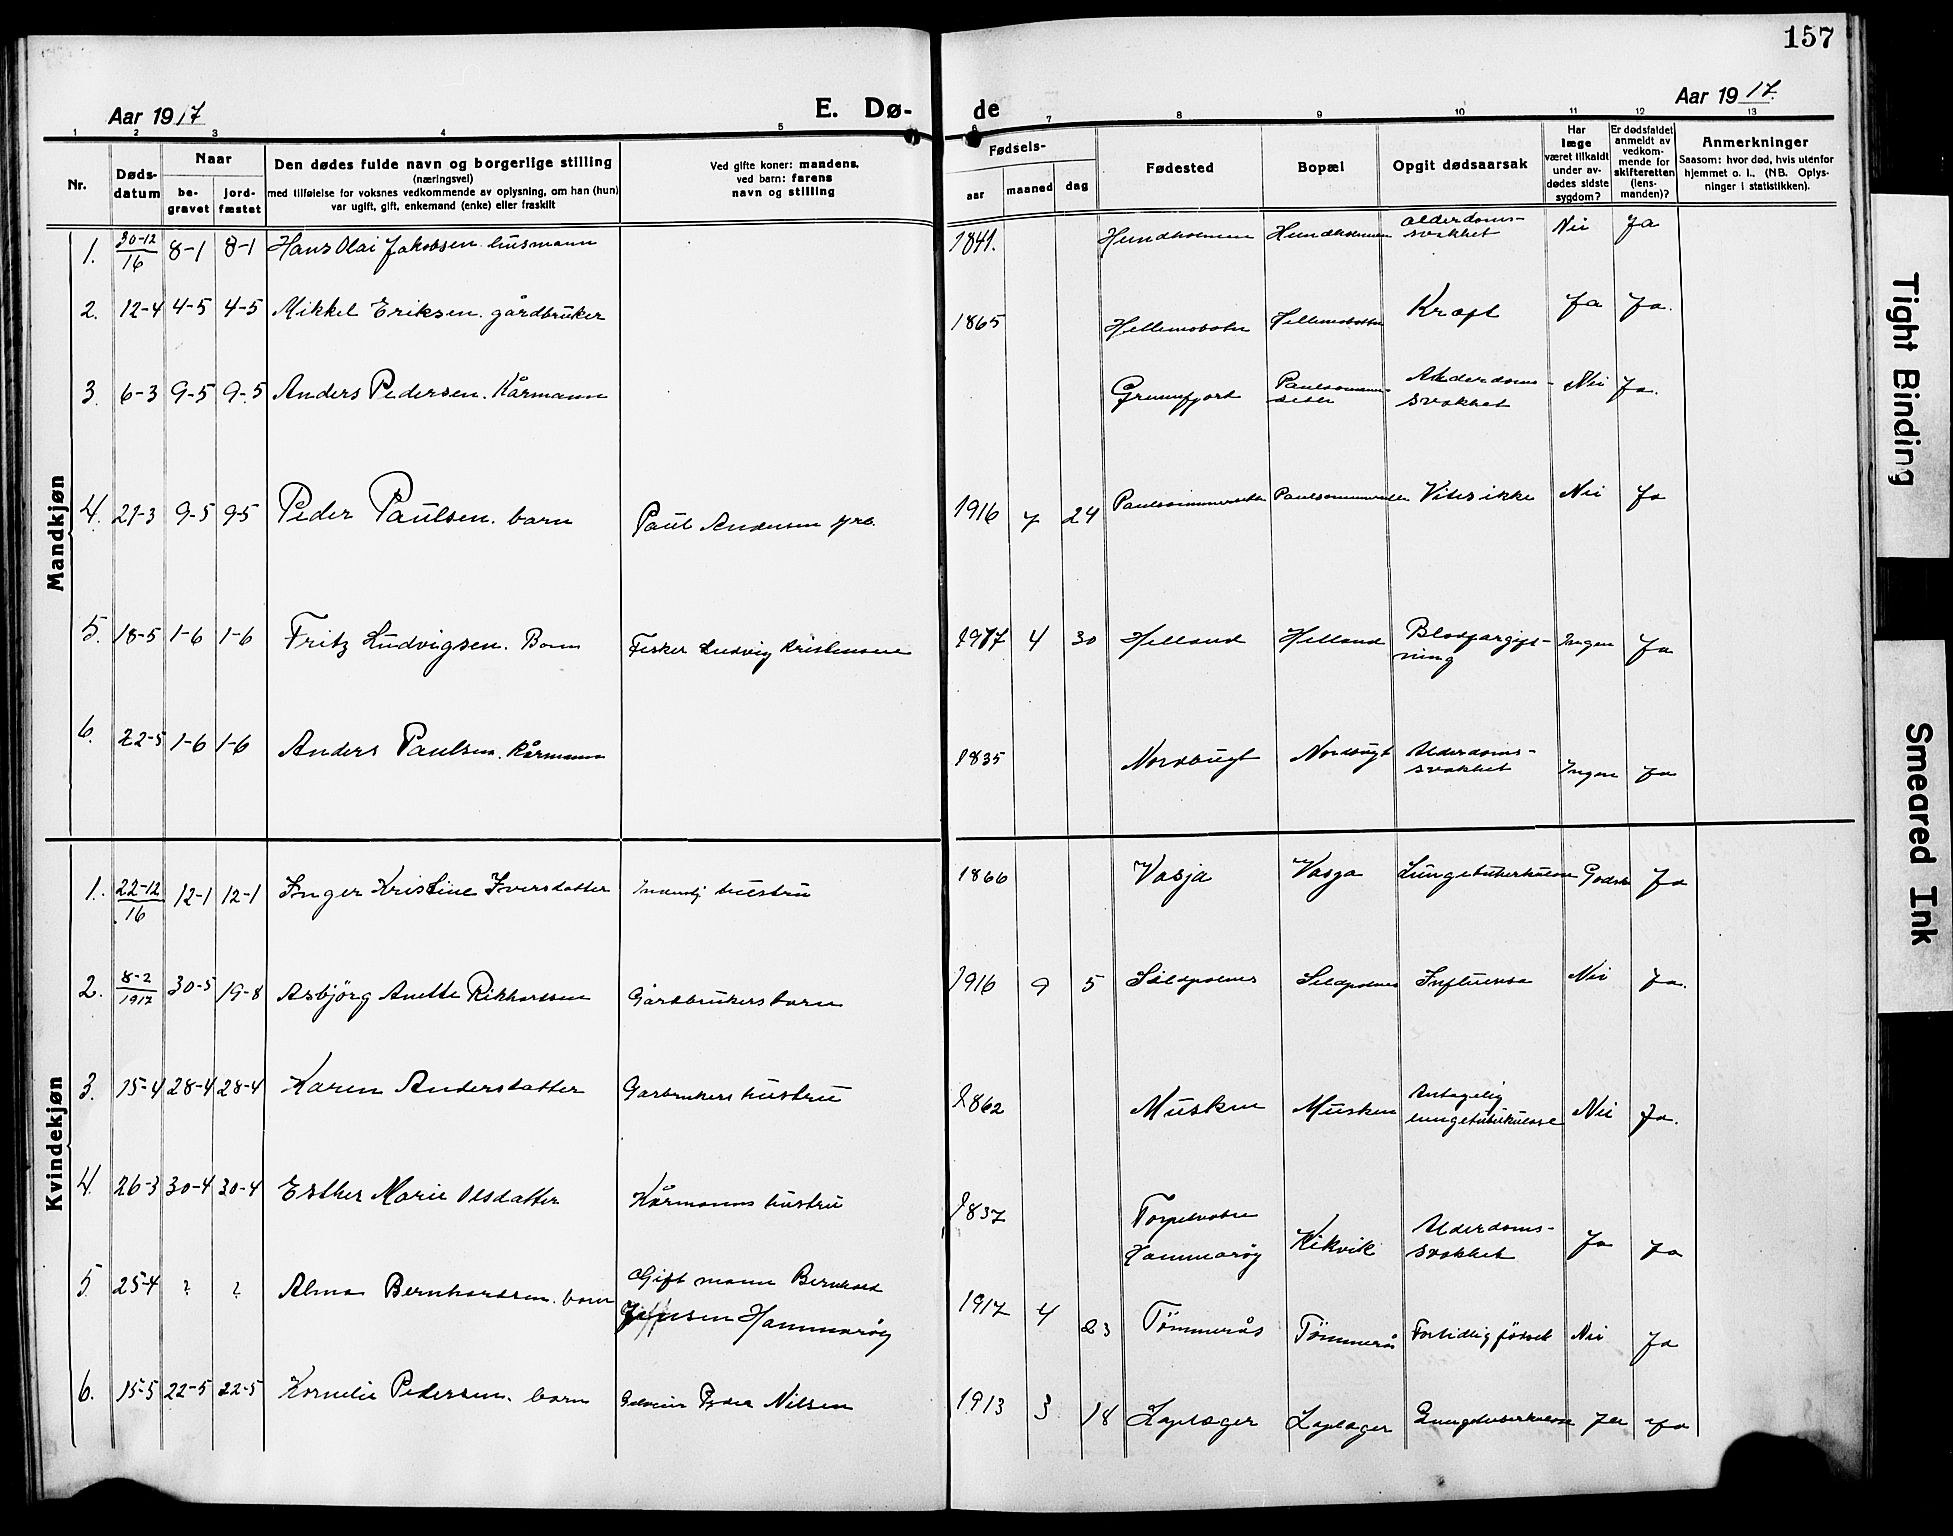 157
Aar 1917
E. Dø-
de
Aar 1917.
1 2 3 4 5 6 7 8 9 10 11 12 13
Nr.
Døds-
datum
Naar
be-
gravet
jord-
fæstet
Den dødes fulde navn og borgerlige stilling
(næringsvei)
med tilføielse for voksnes vedkommende av oplysning, om han (hun)
var ugift, gift, enkemand (enke) eller fraskilt
Ved gifte koner: mandens,
ved barn: farens
navn og stilling
Fødsels-
aar
maaned
dag
Fødested
Bopæl
Opgit dødsaarsak
Har
læge
været tilkaldt
under av-
dødes sidste
sygdom?
Er dødsfaldet
anmeldt av
vedkom-
mende for
skifteretten
(lens-
manden)?
Anmerkninger
Saasom: hvor død, hvis utenfor
hjemmet o. l.. (NB. Oplys-
ninger i statistikken).
Mandkjøn
1. 30-12/16 8-1 8-1 Hans Olai Jakobsen husmann 1841. Hundholmen Hundholmen Alderdoms-
svakhet Nei Ja
2. 12-4 4-5 4-5 Mikkel Eriksen. gårdbruker 1865 Hellemobotn Hellemobotn Kræft Ja Ja.
3. 6-3 9-5 9-5 Anders Pedersen. Kårmann Grunnfjord Alderdoms-
svakhet Nei Ja.
4. 21-3 9-5 9-5 Peder Paulsen. barn Paul Andersen 1916 7 24 Vites ikke Nei Ja
5. 18-5 1-6 1-6 Fritz Ludvigsen. Barn Fisker Ludvig Kristensen 1917 4 30 Helland Helland Blodforgift-
ning Ingen Ja
6. 22-5 1-6 1-6 Anders Paulsen. kårmann 1835 Nordbugt Nordbugt Alderdoms-
svakhet Ingen Ja
Kvindekjøn
1. 22-12/16 12-1 12-1 Inger Kristine Iversdatter hustru 1866 Vasja Vasja Lungetuberkulose Ja
2. 8-2/1917 30-5 19-8 Asbjörg Anette Rikhardsen Gårdbrukers barn 1916 9 5 Sildpolnes Sildpolnes Influensa Nei Ja.
3. 15-4 28-4 28-4 Karen Andersdatter Gårbrukers hustru 1862 Musken Musken Antagelig
lungetuberkulose Nei Ja.
4. 26-3 30-4 30-4 Esther Marie Olsdatter Kårmanns hustru 1837
Hammarøy Kikvik Alderdoms-
svakhet Ja Ja
5. 25-4 ? ? Alma Bernhardsen. barn Gift mann Bernhard
Jensen Hammarøy 1917 4 23 Tømmerås Tømmerås Fortidlig fødsel Nei Ja
6. 15-5 22-5 22-5 Kornelie Pedersen. barn Peder Nilsen 1913 3 18 Laplæger Laplæger Lungetuberkulose Ja Ja
Tight Binding
Smeared Ink